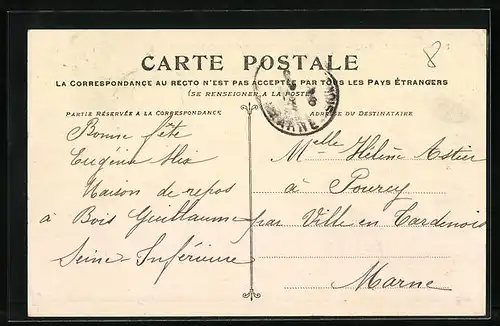 8
CARTE POSTALE
LA CORRESPONDANCE AU RECTO N'EST PAS ACCEPTÉE PAR TOUS LES PAYS ÉTRANGERS
(SE RENSEIGNER A LA POSTE)
PARTIE RÉSERVÉE A LA CORRESPONDANCE
ADRESSE DU DESTINATAIRE
MARNE
Bonne fête
Eugénie
Maison de repos
à Bois Guillaume
Seine-Inférieure
Melle Hélène Astier
à Pourcy
par Ville en Tardenois
Marne